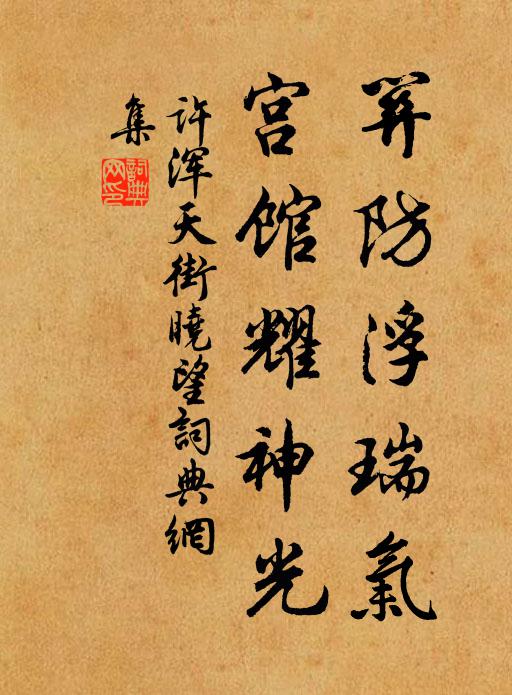 關防浮瑞氣
宫館耀神光
許渾天街曉望詞典網
集
詞典
网印